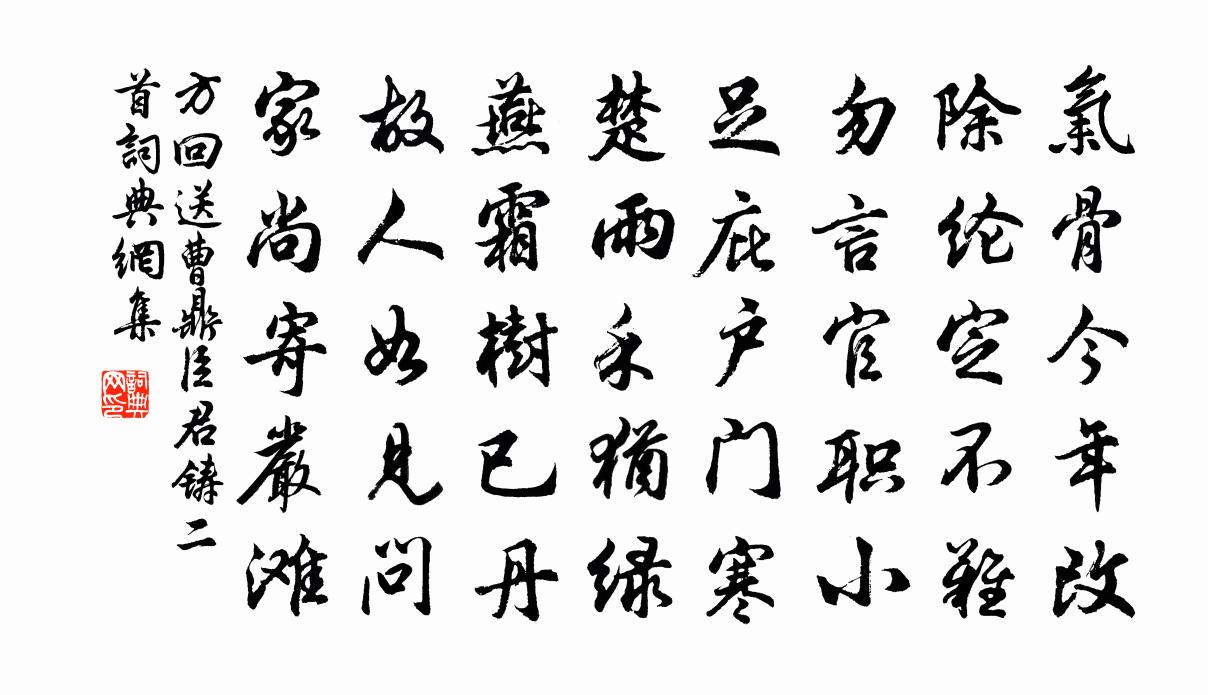 氣骨今年改
除纶定不難
勿言官职小
足庇户门寒
楚雨禾猶绿
燕霜樹已丹
故人如見问
家尚寄嚴滩
方回送曹鼎臣君鑄二
首詞典網集
詞典网印